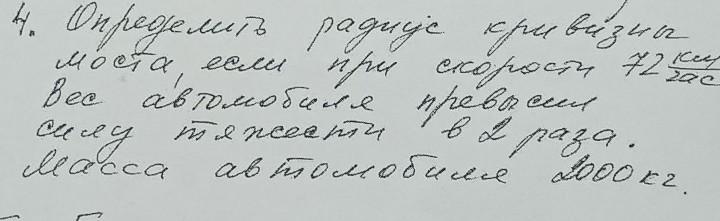 4. Определить радиус кривизны
моста, если при скорости 72 км/час
Вес автомобиля превысил
силу тяжести в 2 раза.
Масса автомобиля 2000 кг.